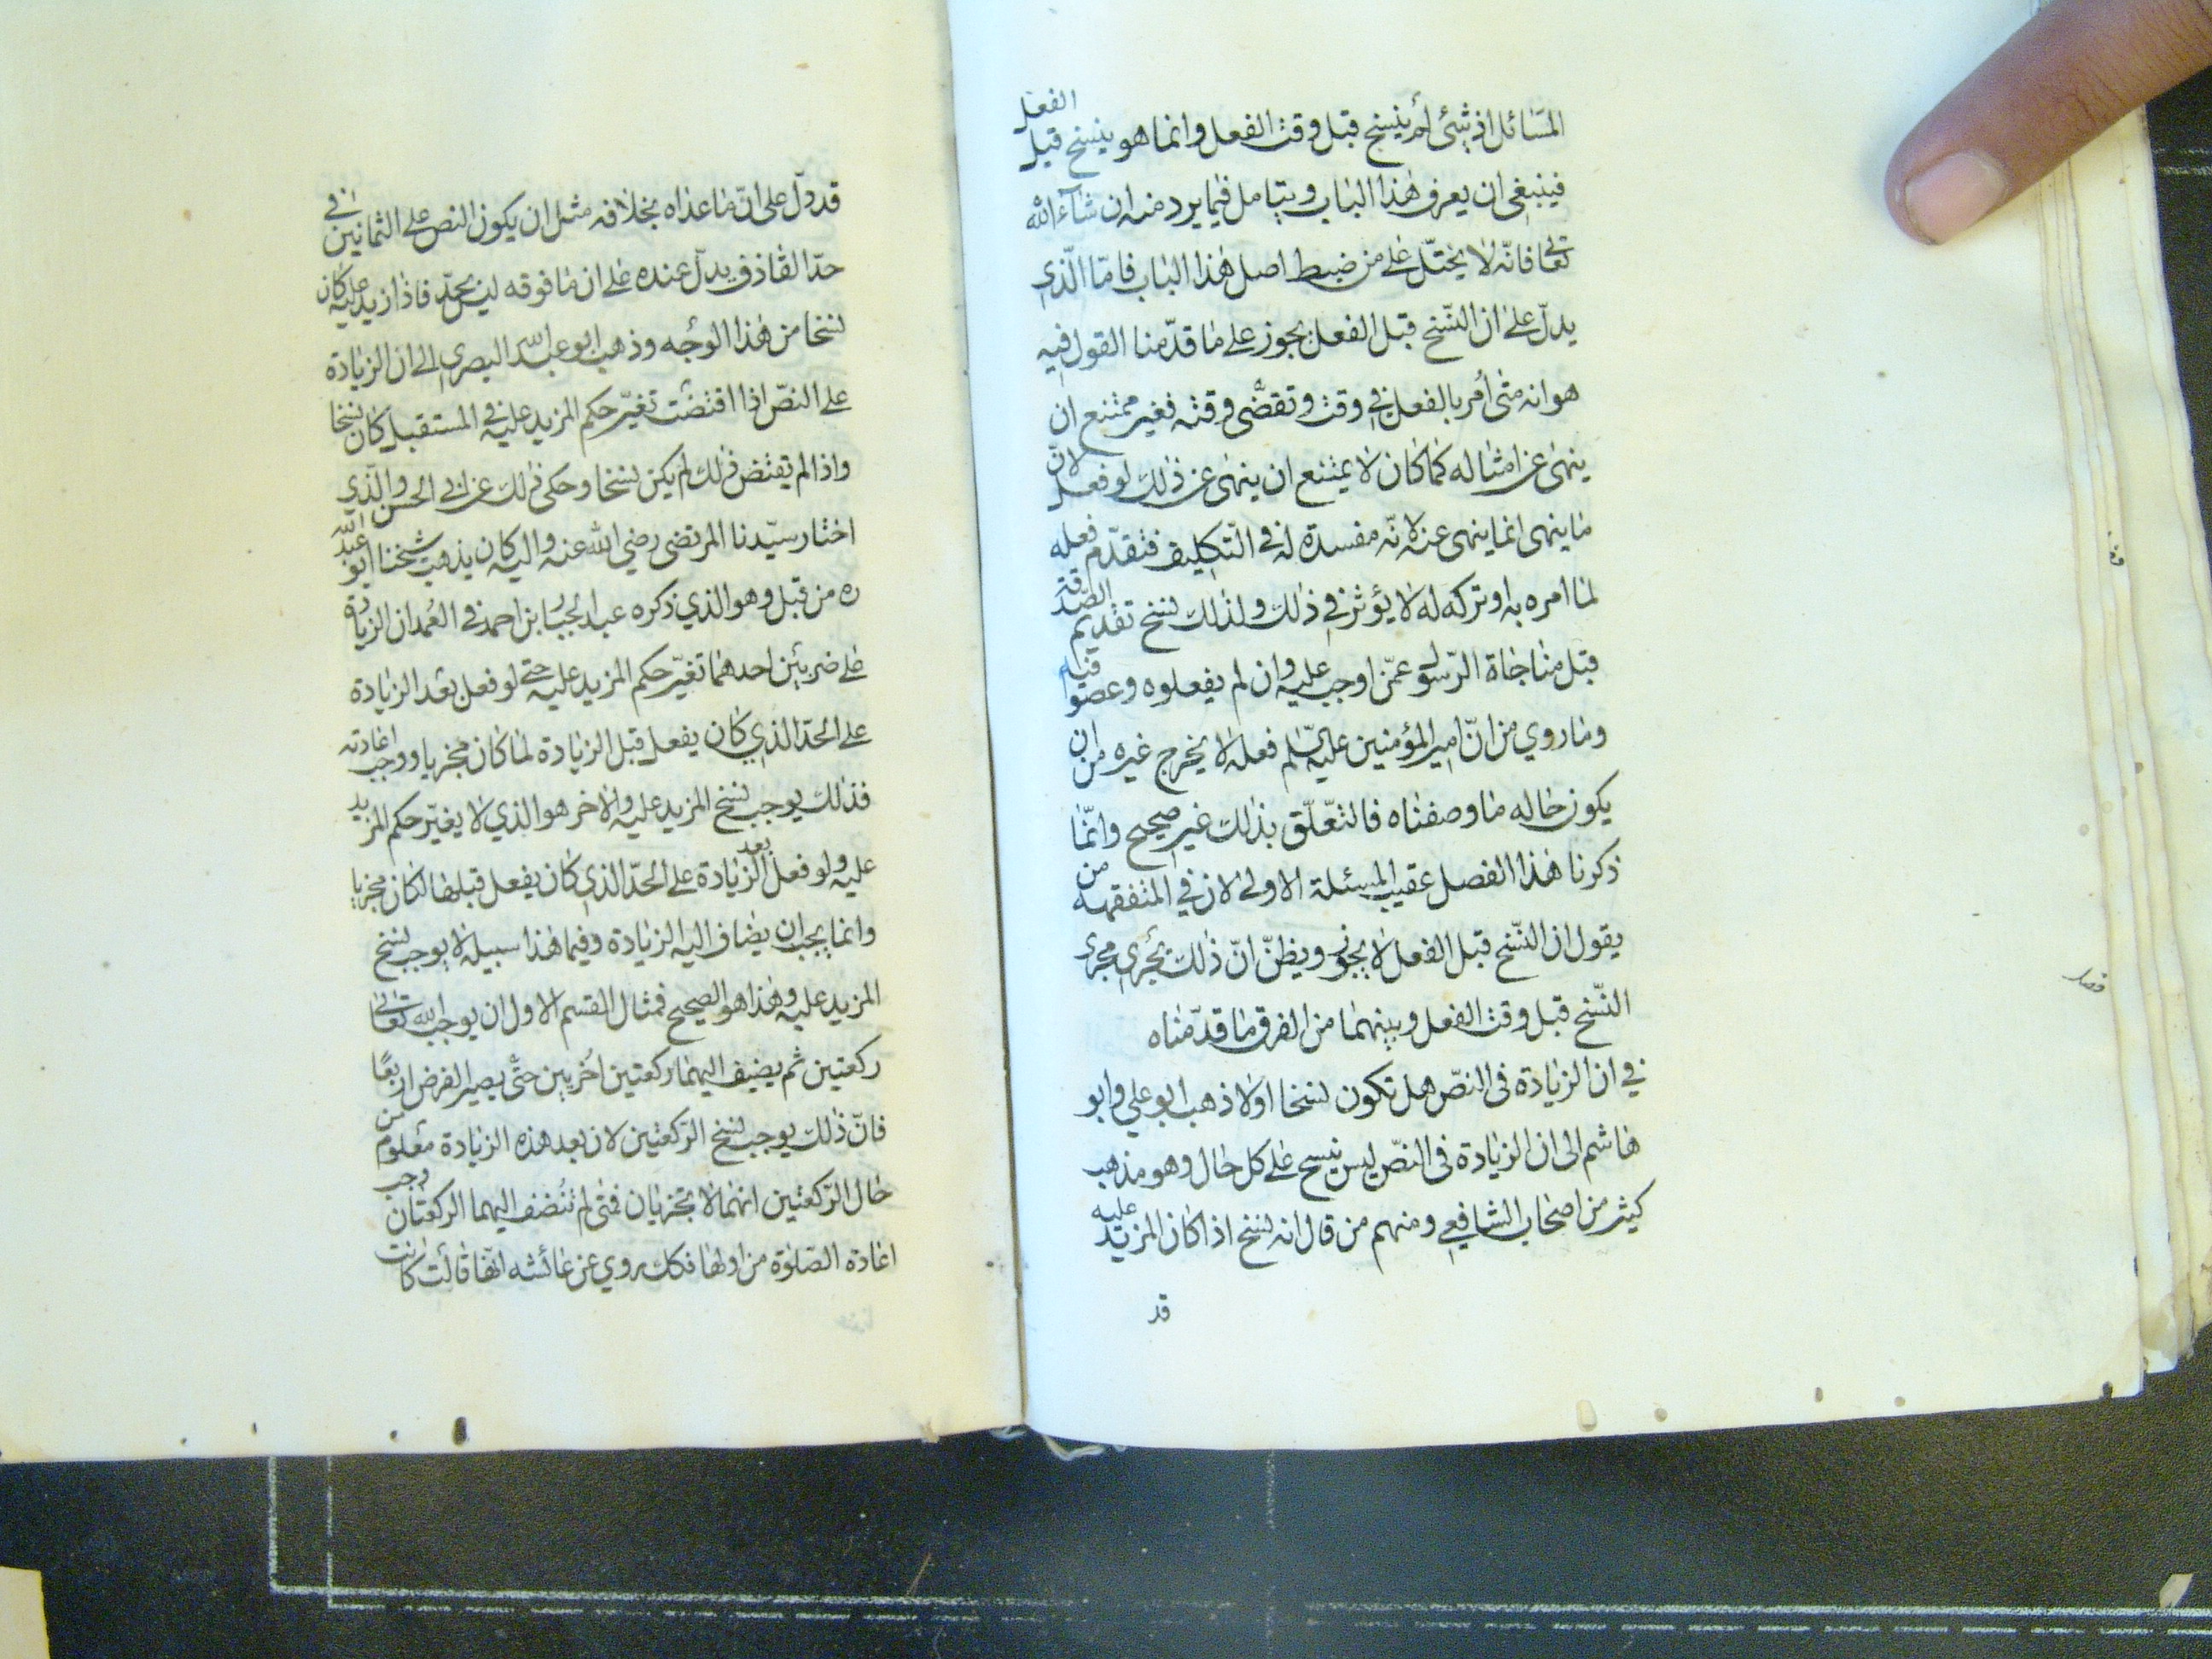 المسائل اذ شئ لم ينسخ قبل وقت الفعل وانما هو ينسخ قبل الفعل
فينبغى ان يعرف هذا الباب ويتامل فيما يرد منه ان شاء الله
تعالى فانه لا يختل على من ضبط اصل هذا الباب فامّا الّذى
يدلّ على ان النسخ قبل الفعل يجوز على ما قدّمنا القول فيه
هو انه متى اُمر بالفعل في وقت وتقضّى وقته فغير ممتنع ان
ينهى عن امثاله كما كان لا يمتنع ان ينهى عن ذلك لو فعل لانّ
ما ينهى انما ينهى عنه لانّه مفسدة له فى التكليف فتقدّم فعله
لما امره به او تركه له لا يؤثر في ذلك ولذلك نسخ تقديم الصّدقة
قبل مناجاة الرّسول عمّن اوجب عليه وان لم يفعلوه وعصوا فيه
وما روي من انّ امير المؤمنين عليه السلم فعله لا يخرج غيره من ان
يكون حاله ما وصفناه فالتعّلّق بذلك غير صحيح وانّما
ذكرنا هذا الفصل عقيب المسئلة الاولى لان في المتفقهه من
يقول ان النّسخ قبل الفعل لا يجوز ويظنّ انّ ذلك يجرى مجرى
النّسخ قبل وقت الفعل وبينهما من الفرق ما قدّمناه
فصل
في ان الزيادة فى النصّ هل تكون نسخا اولا ذهب ابو علي وابو
هاشم الى ان الزيادة فى النصّ ليس بنسخ على كل حال وهو مذهب
كثير من اصحاب الشافعى ومنهم من قال انه نسخ اذا كان المزيد عليه
قد
قد دلّ على انّ ما عداه بخلافه مثل ان يكون النص على الثمانين في
حدّ القاذف يدلّ عنده على ان ما فوقه ليس بحدّ فاذا زيد عليه كان
نسخا من هذا الوجه وذهب ابو عبد الله البصرى الى ان الزيادة
على النصّ اذا اقتضت تغيّر حكم المزيد عليه في المستقبل كان نسخا
واذا لم يقتض ذلك لم يكن نسخا وحكى ذلك عن ابى الحسن والّذي
اختار سيّدنا المرتضى رضي الله عنه واليه كان يذهب شيخنا ابو عبد الله
ره من قبل وهو الذي ذكره عبد الجبار ابن احمد في العُمد ان الزيادة
على ضربين احدهما تغيّر حكم المزيد عليه حتى لو فعل بعد الزيادة
على الحدّ الذي كان يفعل قبل الزيادة لما كان مجزيا ووجب اعادته
فذلك يوجب نسخ المزيد عليه والاخر هو الذي لا يغيّر حكم المزيد
عليه ولو فعل بعد الزيادة على الحدّ الذي كان يفعل قبلها لكان مجزيا
وانما يجب ان يضاف اليه الزيادة وفيما هذا سبيله لا يوجب نسخ
المزيد عليه وهذا هو الصحيح فمثال القسم الاول ان يوجب الله تعالى
ركعتين ثم يضيف اليهما ركعتين اُخريين حتّى يصير الفرض اربعًا
فانّ ذلك يوجب نسخ الرّكعتين لان بعد هذه الزيادة معلوم من
حال الرّكعتين انهما لا تجزيان فمتى لم تُضف اليهما الركعتان وجب
اعادة الصّلوة من اولها فكك روي عن عائشه انّها قالت كانت